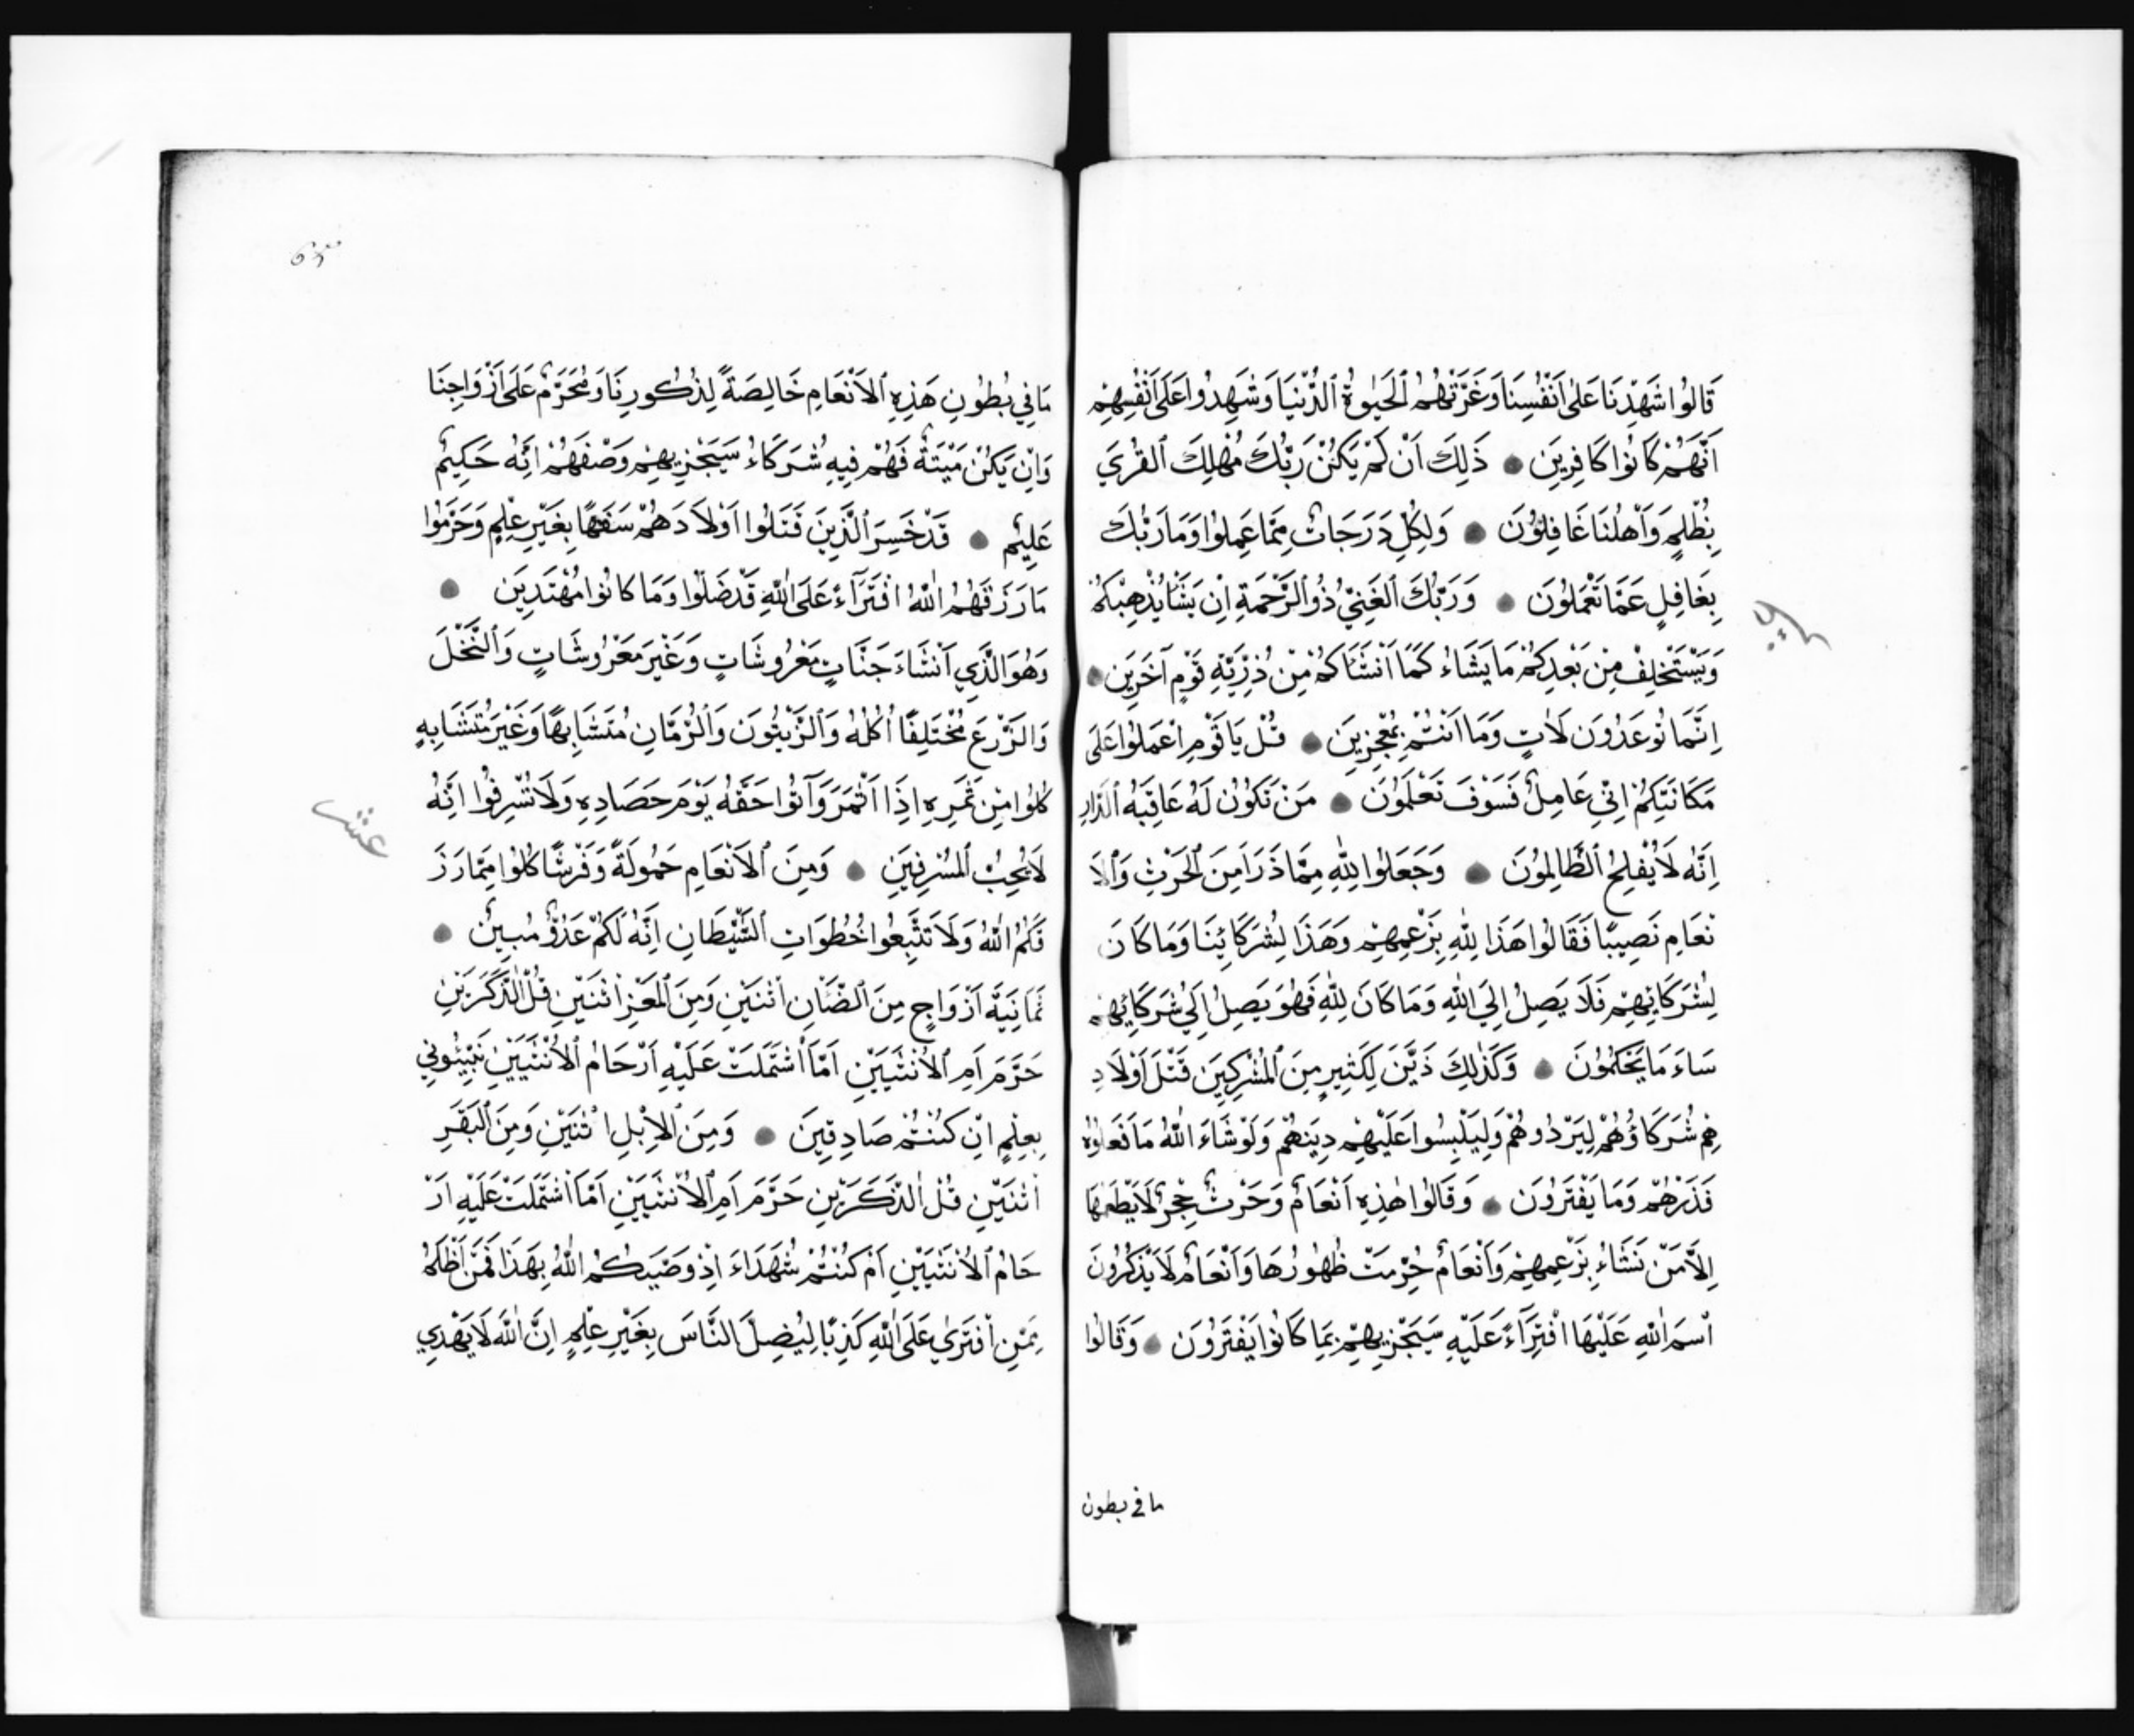 قَالُوا شَهِدْنَا عَلٰى اَنْفُسِنَا وَغَرَّتْهُمُ ٱلْحَيٰوةُ ٱلدُّنْيَا وَشَهِدُوا عَلَى اَنْفُسِهِمْ
اَنَّهُمْ كَانُوا كَافِرِينَ ● ذَلِكَ اَنْ لَمْ يَكُنْ رَبُّكَ مُهْلِكَ ٱلْقُرَي
بِظُلْمٍ وَاَهْلُنَا غَافِلُوُنَ ● وَلِكُلٍّ دَرَجَاتٌ مِمَّا عَمِلُوا وَمَا رَبُّكَ
بِغَافِلٍ عَمَّا تَعْمَلُوُنَ ● وَرَبُّكَ ٱلْغَنِيُّ ذُوُ ٱلرَّحْمَةِ اِنْ يَشَأْ يُذْهِبْكُمْ
وَيَسْتَخْلِفْ مِنْ بَعْدِكُمْ مَا يَشَاءُ كَمَا اَنْشَاَكُمْ مِنْ ذُرِّيَّةِ قَوْمٍ آخَرِينَ ●
اِنَّمَا تُوعَدُونَ لَاٰتٍ وَمَا اَنْتُمْ بِمُعْجِزِينَ ● قُلْ يَا قَوْمِ اعْمَلُوُا عَلَى
مَكَانَتِكُمْ اِنِّي عَامِلٌ فَسَوْفَ تَعْلَمُوُنَ ● مَنْ تَكُوُنُ لَهُ عَاقِبَةُ ٱلدَّارِ
اِنَّهُ لَا يُفْلِحُ ٱلظَّالِمُوُنَ ● وَجَعَلُوا لِلّٰهِ مِمَّا ذَرَاَ مِنَ ٱلْحَرْثِ وَٱلْاَ
نْعَامِ نَصِيبًا فَقَالُوا هَذَا لِلّٰهِ بِزَعْمِهِمْ وَهَذَا لِشُرَكَائِنَا وَمَا كَانَ
لِشُرَكَائِهِمْ فَلَا يَصِلُ اِلَي اللّٰهِ وَمَا كَانَ لِلّٰهِ فَهُوَ يَصِلُ اِلَي شُرَكَائِهِمْ
سَاءَ مَا يَحْكُمُوُنَ ● وَكَذٰلِكَ زَيَّنَ لِكَثِيرٍ مِنَ ٱلْمُشْرِكِينَ قَتْلَ اَوْلَادِ
هِمْ شُرَكَاؤُهُمْ لِيُرْدُوهُمْ وَلِيَلْبِسُوا عَلَيْهِمْ دِينَهُمْ وَلَوْ شَاءَ اللّٰهُ مَا فَعَلُوُهُ
فَذَرْهُمْ وَمَا يَفْتَرُونَ ● وَقَالُوا هٰذِهِ اَنْعَامٌ وَحَرْثٌ حِجْرٌ لَا يَطْعَمُهَا
اِلَّا مَنْ نَشَاءُ بِزَعْمِهِمْ وَاَنْعَامٌ حُرِّمَتْ ظُهُوُرُهَا وَاَنْعَامٌ لَا يَذْكُرُونَ
ٱسْمَ اللّٰهِ عَلَيْهَا افْتِرَآءً عَلَيْهِ سَيَجْزِيهِمْ بِمَا كَانُوا يَفْتَرُوُنَ ● وَقَالُوا
ما في بطون
مَا فِي بُطُوُنِ هَذِهِ ٱلْاَنْعَامِ خَالِصَةً لِذُكُورِنَا وَمُحَرَّمٌ عَلَى اَزْوَاجِنَا
وَاِنْ يَكُنْ مَيْتَةً فَهُمْ فِيهِ شُرَكَاءُ سَيَجْزِيهِمْ وَصْفَهُمْ اِنَّهُ حَكِيمٌ
عَلِيْمٌ ● قَدْ خَسِرَ ٱلَّذِينَ قَتَلُوا اَوْلَادَهُمْ سَفَهًا بِغَيْرِ عِلْمٍ وَحَرَّمُوا
مَا رَزَقَهُمُ اللّٰهُ افْتِرَآءً عَلَى اللّٰهِ قَدْ ضَلُّوا وَمَا كَانُوا مُهْتَدِينَ ●
وَهُوَ الَّذِي اَنْشَاءَ جَنَّاتٍ مَعْرُوشَاتٍ وَغَيْرَ مَعْرُوشَاتٍ وَٱلنَّخْلَ
وَالزَّرْعَ مُخْتَلِفًا اُكُلُهُ وَٱلزَّيْتُوُنَ وَٱلرُّمَّانِ مُتَشَابِهًا وَغَيْرَ مُتَشَابِهٍ
كُلُوُا مِنْ ثَمَرِهِ اِذَا اَثْمَرَ وَآتُوُا حَقَّهُ يَوْمَ حَصَادِهِ وَلَا تُسْرِفُوُا اِنَّهُ
لَا يُحِبُّ ٱلْمُسْرِفِينَ ● وَمِنَ ٱلْاَنْعَامِ حَمُولَةً وَفَرْشًا كُلُوُا مِمَّا رَزَ
قَكُمُ اللّٰهُ وَلَا تَتَّبِعُوا خُطُوَاتِ ٱلشَّيْطَانِ اِنَّهُ لَكُمْ عَدُوٌّ مُبِينٌ ●
ثَمَانِيَةَ اَزْوَاجٍ مِنَ ٱلضَّاْنِ اثْنَيْنِ وَمِنَ ٱلْمَعْزِ اثْنَيْنِ قُلْ آلذَّكَرَيْنِ
حَرَّمَ اَمِ ٱلْاُنْثَيَيْنِ اَمَّا اشْتَمَلَتْ عَلَيْهِ اَرْحَامُ ٱلْاُنْثَيَيْنِ نَبِّئُونِي
بِعِلْمٍ اِنْ كُنْتُمْ صَادِقِينَ ● وَمِنَ ٱلْاِبْلِ اثْنَيْنِ وَمِنَ ٱلْبَقَرِ
اثْنَيْنِ قُلْ آلذَّكَرَيْنِ حَرَّمَ اَمِ ٱلْاُنْثَيَيْنِ اَمَّا اشْتَمَلَتْ عَلَيْهِ اَرْ
حَامُ ٱلْاُنْثَيَيْنِ اَمْ كُنْتُمْ شُهَدَاءَ اِذْ وَصَّيكُمُ اللّٰهُ بِهَذَا فَمَنْ اَظْلَمُ
مِمَّنِ افْتَرٰي عَلَى اللّٰهِ كَذِبًا لِيُضِلَّ النَّاسَ بِغَيْرِ عِلْمٍ اِنَّ اللّٰهَ لَا يَهْدِي
عشر